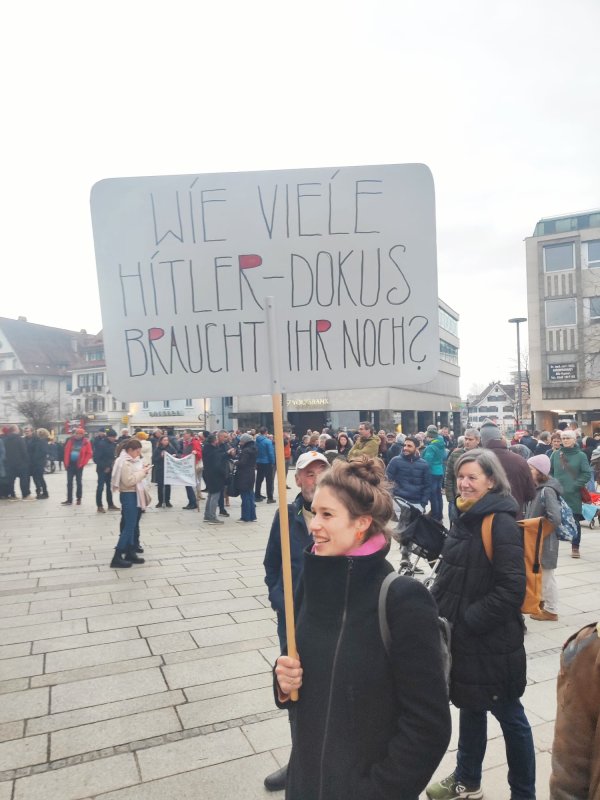 WIE VIELE
HITLER-DOKUS
BRAUCHT IHR NOCH?